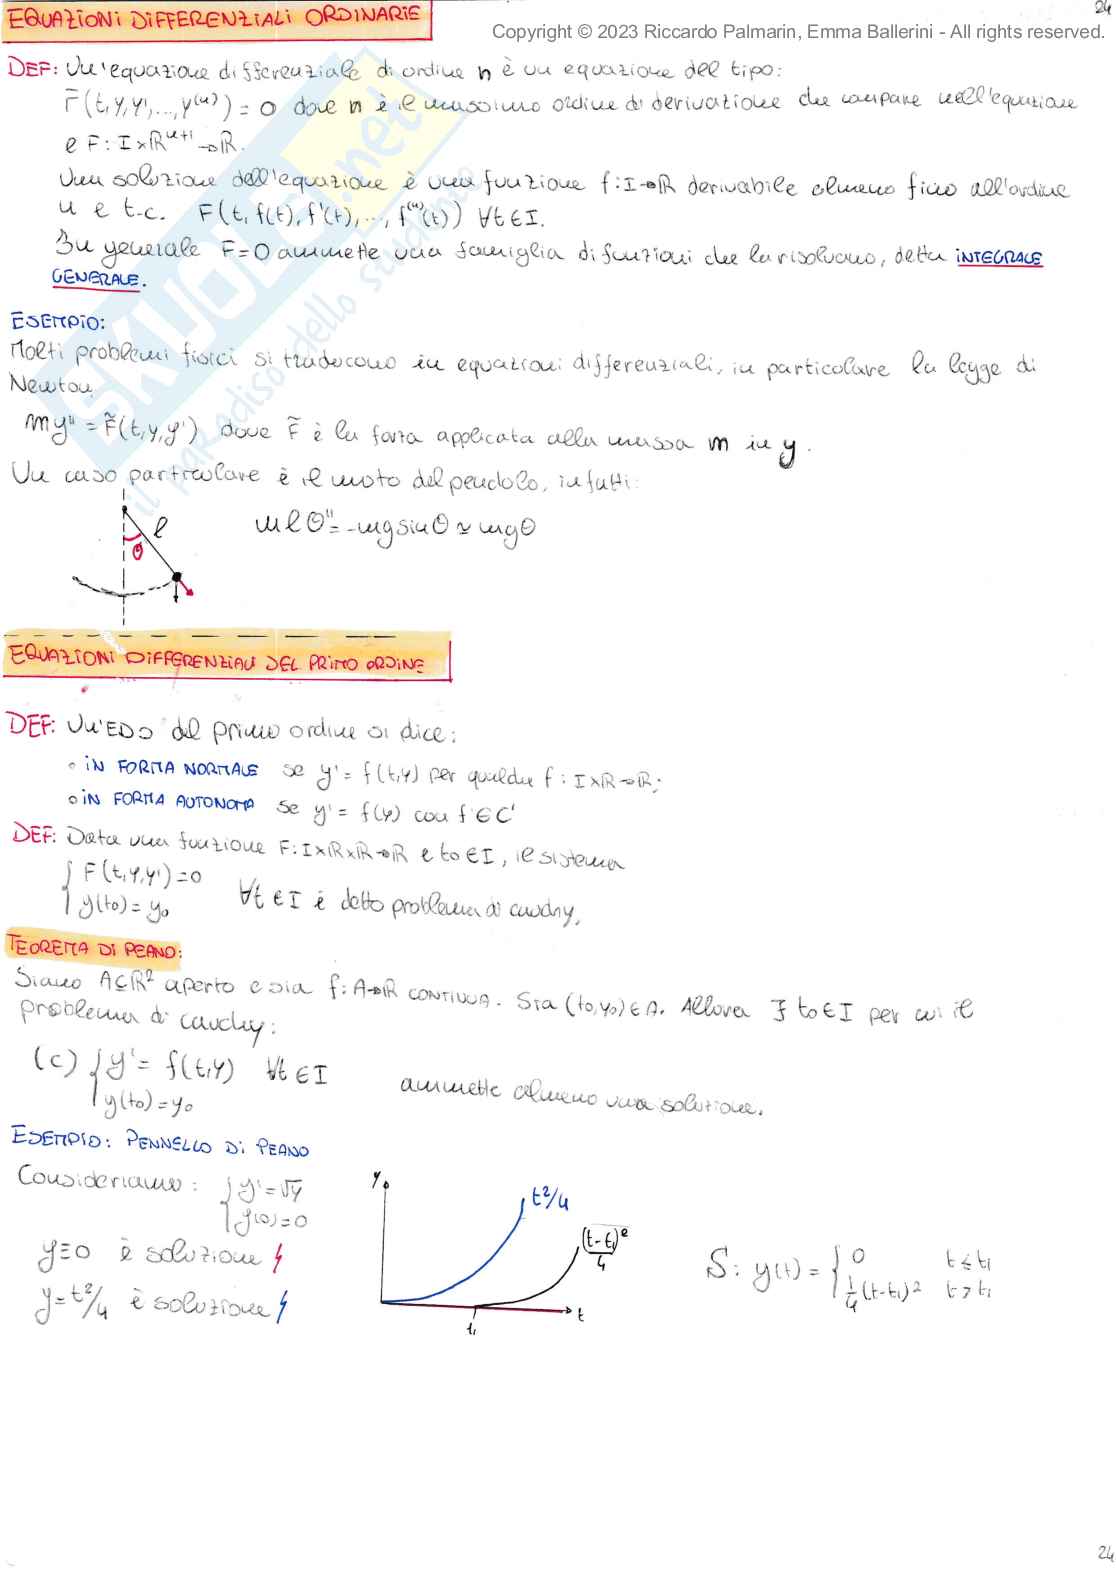 24
EQUAZIONI DIFFERENZIALI ORDINARIE
Copyright © 2023 Riccardo Palmarin, Emma Ballerini - All rights reserved.
DEF: Un'equazione differenziale di ordine n è un equazione del tipo:
F(t,y,y',...,y⁽ⁿ⁾) = 0 dove n è il massimo ordine di derivazione che compare nell'equazione
e F: I×ℝⁿ⁺¹→ℝ.
Una soluzione dell'equazione è una funzione f: I→ℝ derivabile almeno fino all'ordine
n e t.c. F(t, f(t), f'(t), ..., f⁽ⁿ⁾(t)) ∀t∈I.
In generale F=0 ammette una famiglia di funzioni che la risolvono, detta INTEGRALE
GENERALE.
ESEMPIO:
Molti problemi fisici si traducono in equazioni differenziali, in particolare la legge di
Newton
my'' = F̃(t,y,y') dove F̃ è la forza applicata alla massa m in y.
Un caso particolare è il moto del pendolo, infatti:
l
θ
mlθ'' = -mg sinθ ≃ mgθ
EQUAZIONI DIFFERENZIALI DEL PRIMO ORDINE
DEF: Un'EDO del primo ordine si dice:
◦ IN FORMA NORMALE se y' = f(t,y) per qualche f: I×ℝ→ℝ;
◦ IN FORMA AUTONOMA se y' = f(y) con f∈C¹
DEF: Data una funzione F: I×ℝ×ℝ→ℝ e t₀∈I, il sistema
{ F(t,y,y')=0
y(t₀) = y₀ ∀t∈I è detto problema di cauchy.
TEOREMA DI PEANO:
Siano A⊆ℝ² aperto e sia f: A→ℝ CONTINUA. Sia (t₀,y₀)∈A. Allora ∃ t₀∈I per cui il
problema di cauchy:
(C) { y' = f(t,y) ∀t∈I
y(t₀) = y₀ ammette almeno una soluzione.
ESEMPIO: PENNELLO DI PEANO
Consideriamo: { y' = √y
y(0) = 0
y≡0 è soluzione
y=t²/4 è soluzione
y
t²/4
(t-t₁)²/4
t
t₁
S: y(t) = { 0 t ≤ t₁
1/4 (t-t₁)² t > t₁
24
SKUOLA.net
il paradiso dello studente